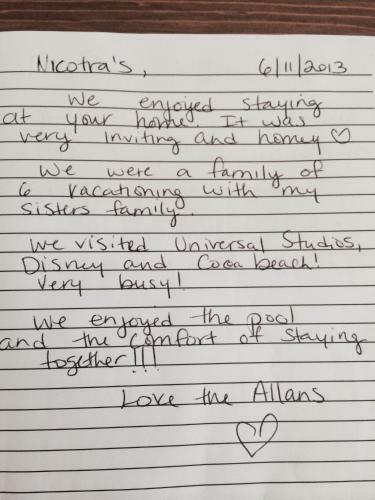 Nicotra's, 6/11/2013
We enjoyed staying
at your home. It was
very inviting and homey ♡
We were a family of
6 vacationing with my
sisters family.
We visited Universal Studios,
Disney and Cocoa beach!
Very busy!
We enjoyed the pool
and the comfort of staying
together!!!
Love the Allans
♡